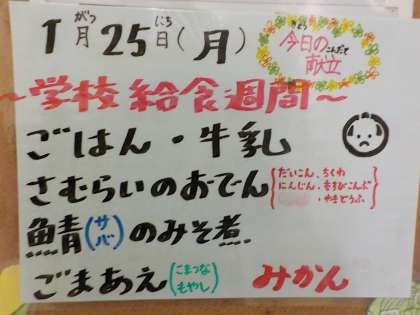 1月25日(月)
がつ にち
きょう こんだて
今日の献立
～学校給食週間～
ごはん・牛乳
さむらいのおでん
だいこん、ちくわ
にんじん・むすびこんぶ
・やきどうふ
鯖(サバ)のみそ煮
ごまあえ(こまつな もやし) みかん